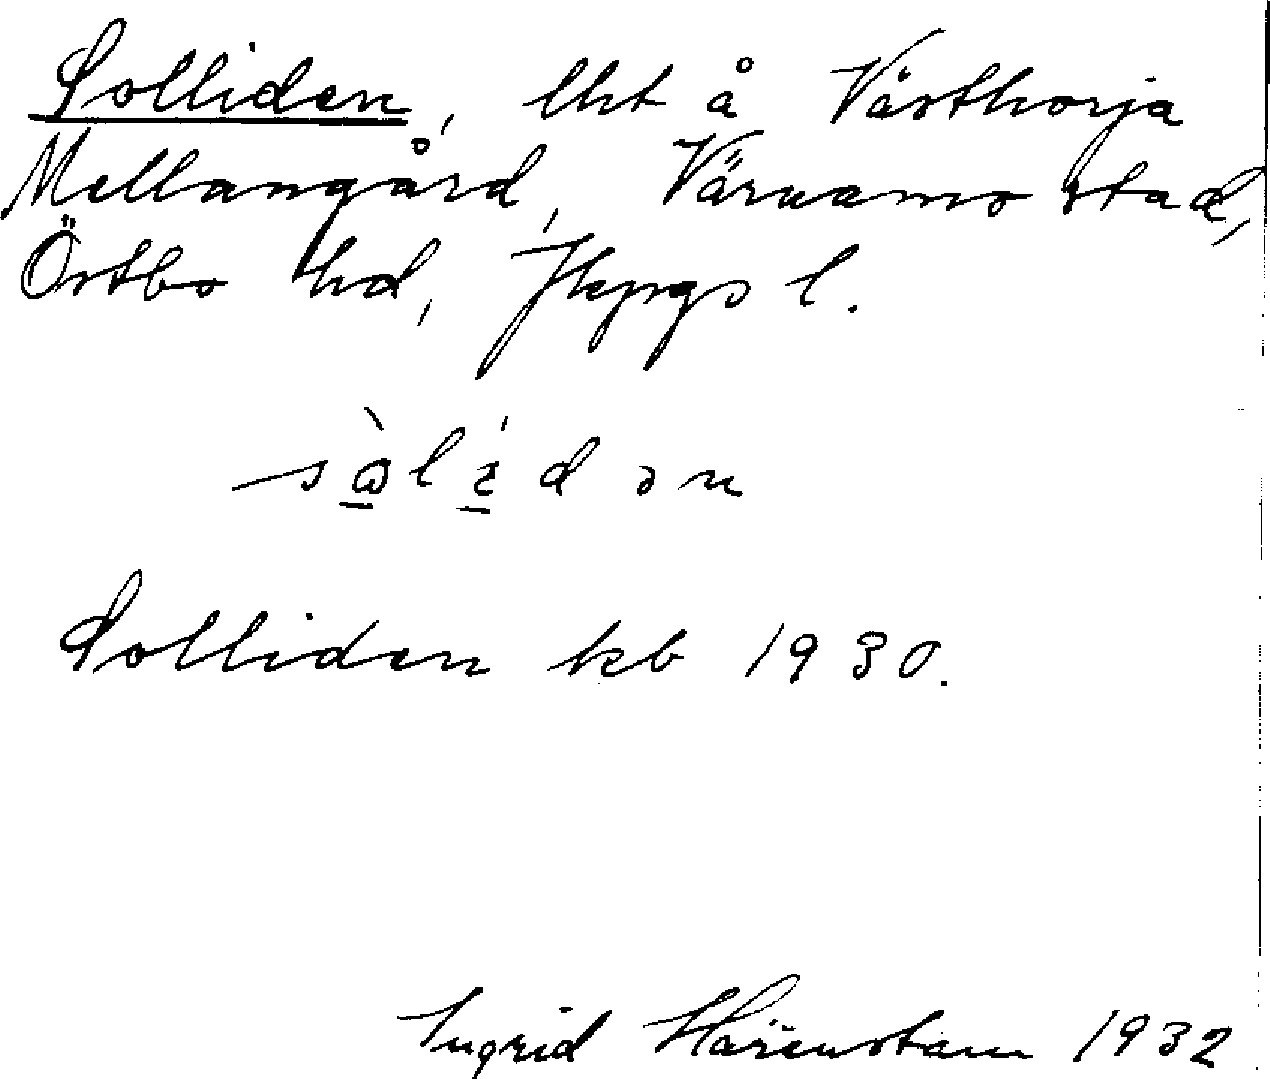 Solliden, lht å Västhorja
Mellangård, Värnamo stad,
Östbo hd, Jkpgs l.
sὼlídən
Solliden kb 1930.
Ingrid Härenstam 1932